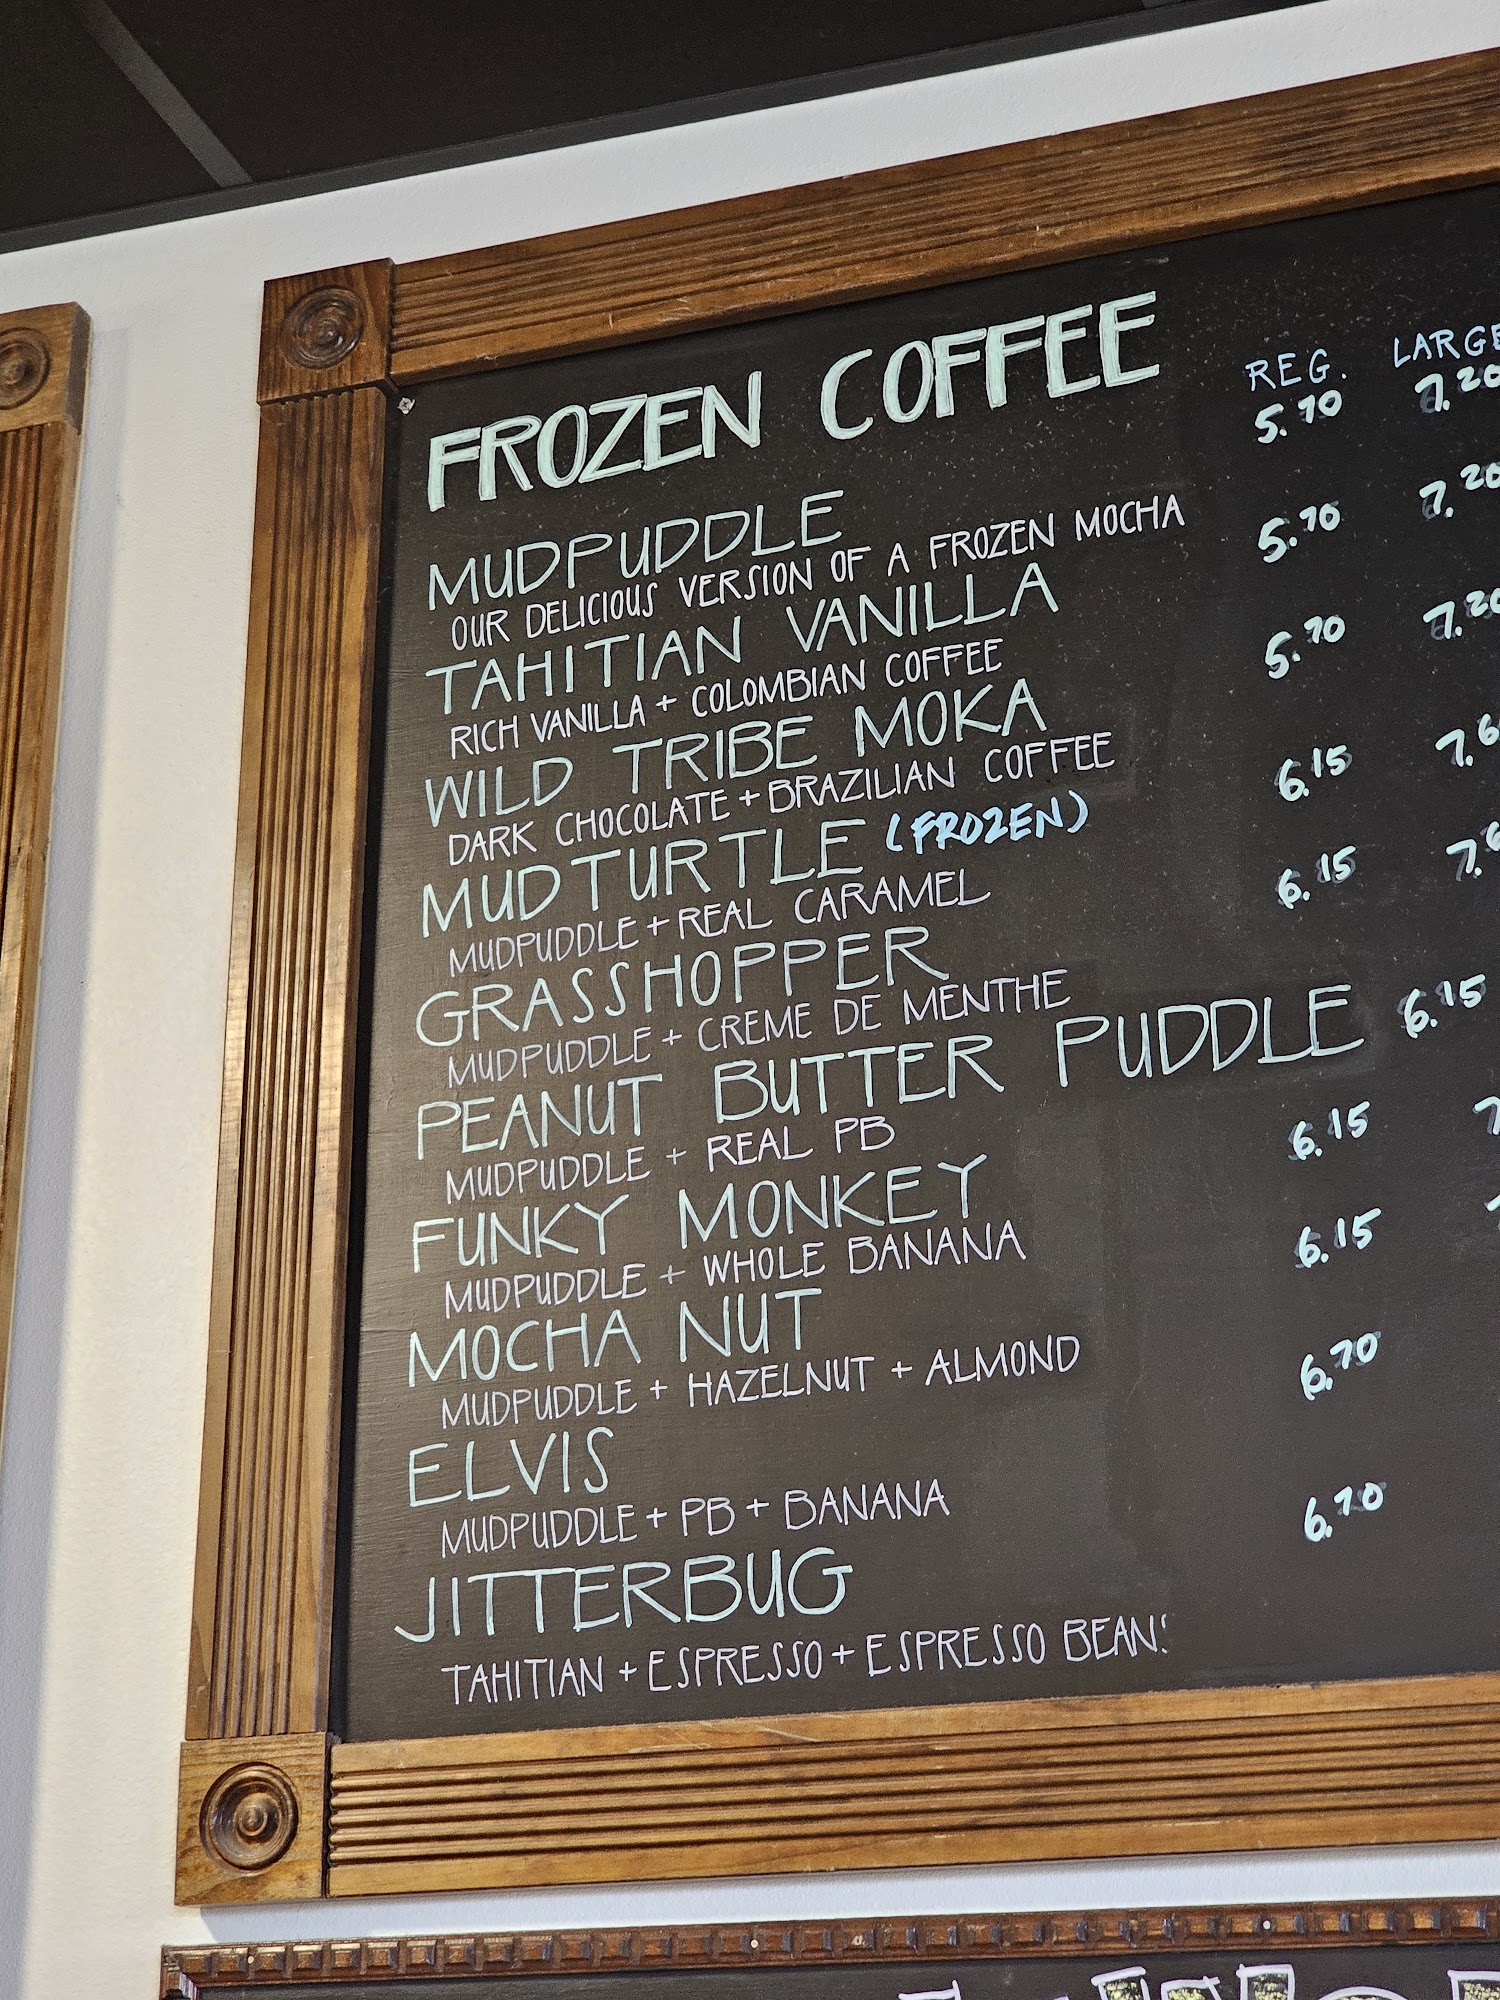 FROZEN COFFEE
REG. LARGE
MUDPUDDLE 5.70 7.20
OUR DELICIOUS VERSION OF A FROZEN MOCHA
TAHITIAN VANILLA 5.70 7.20
RICH VANILLA + COLOMBIAN COFFEE
WILD TRIBE MOKA 5.70 7.20
DARK CHOCOLATE + BRAZILIAN COFFEE
MUDTURTLE (FROZEN) 6.15
MUDPUDDLE + REAL CARAMEL
GRASSHOPPER 6.15
MUDPUDDLE + CREME DE MENTHE
PEANUT BUTTER PUDDLE 6.15
MUDPUDDLE + REAL PB
FUNKY MONKEY 6.15
MUDPUDDLE + WHOLE BANANA
MOCHA NUT 6.15
MUDPUDDLE + HAZELNUT + ALMOND
ELVIS 6.70
MUDPUDDLE + PB + BANANA
JITTERBUG 6.70
TAHITIAN + ESPRESSO + ESPRESSO BEANS